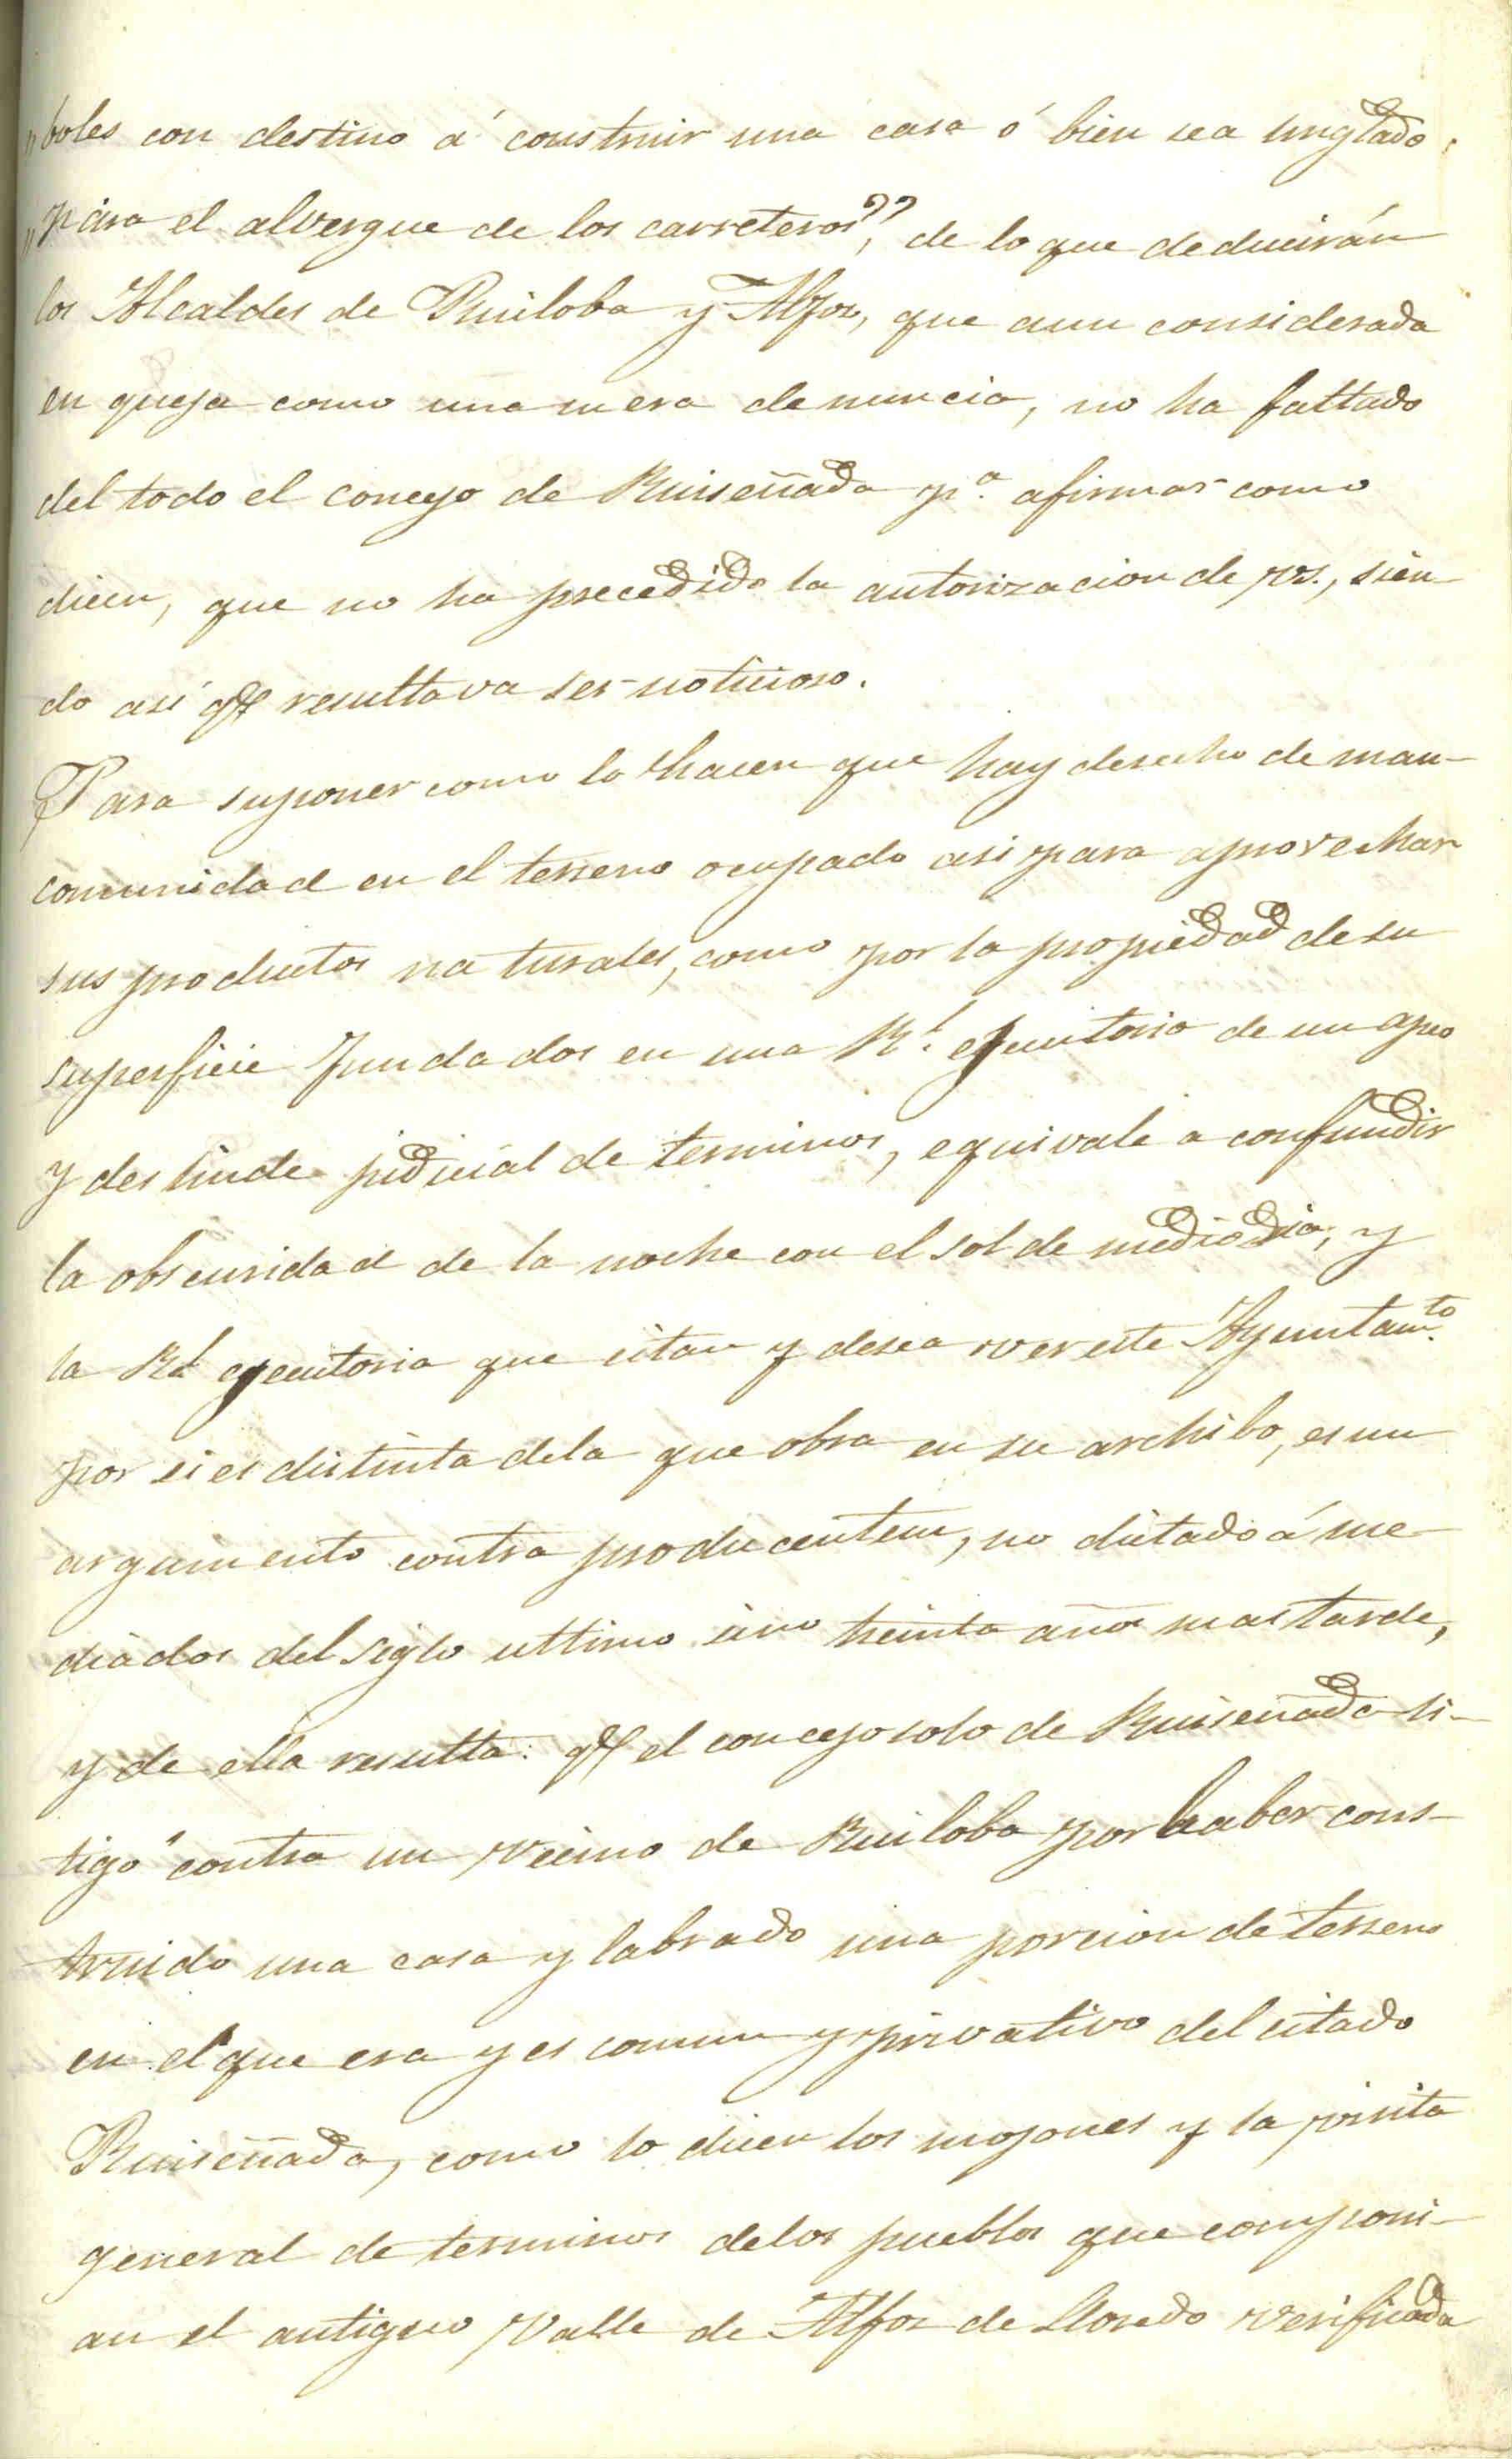 "boles con destino á construir una casa ó bien sea tinglado.
"para el alvergue de los carreteros", de lo que deducirán
los Alcaldes de Ruiloba y Alfoz, que aun considerada
en queja como una mera denuncia, no ha faltado
del todo el concejo de Ruiseñada pª. afirmar como
dicen, que no ha precedido la autorizacion de VS., sien-
do asi qe resultava ser noticioso.
Para suponer como lo hacen que hay derecho de man-
comunidad en el terreno ocupado asi para aprovechar
sus productos naturales, como por la propiedad de su
superficie fundados en una Rl. ejecutoria de un apeo
y deslinde judicial de terminos, equivale a confundir
la obscuridad de la noche con el sol de medio dia; y
la Rl ejecutoria que citan y desea ver este Ayuntamto.
por si es distinta dela que obra en su archibo, es un
argumento contra producentem, no dictado á me-
diados del siglo ultimo sino treinta años mas tarde,
y de ella resulta: qe el concejo solo de Ruiseñada li-
tigó contra un vecino de Ruiloba por haber cons-
truido una casa y labrado una porcion de terreno
en el que era y es comun y privativo del citado
Ruiseñada, como lo dicen los mojones y la visita
general de terminos delos pueblos que componi-
an el antiguo Valle de Alfoz de Lloredo verificada